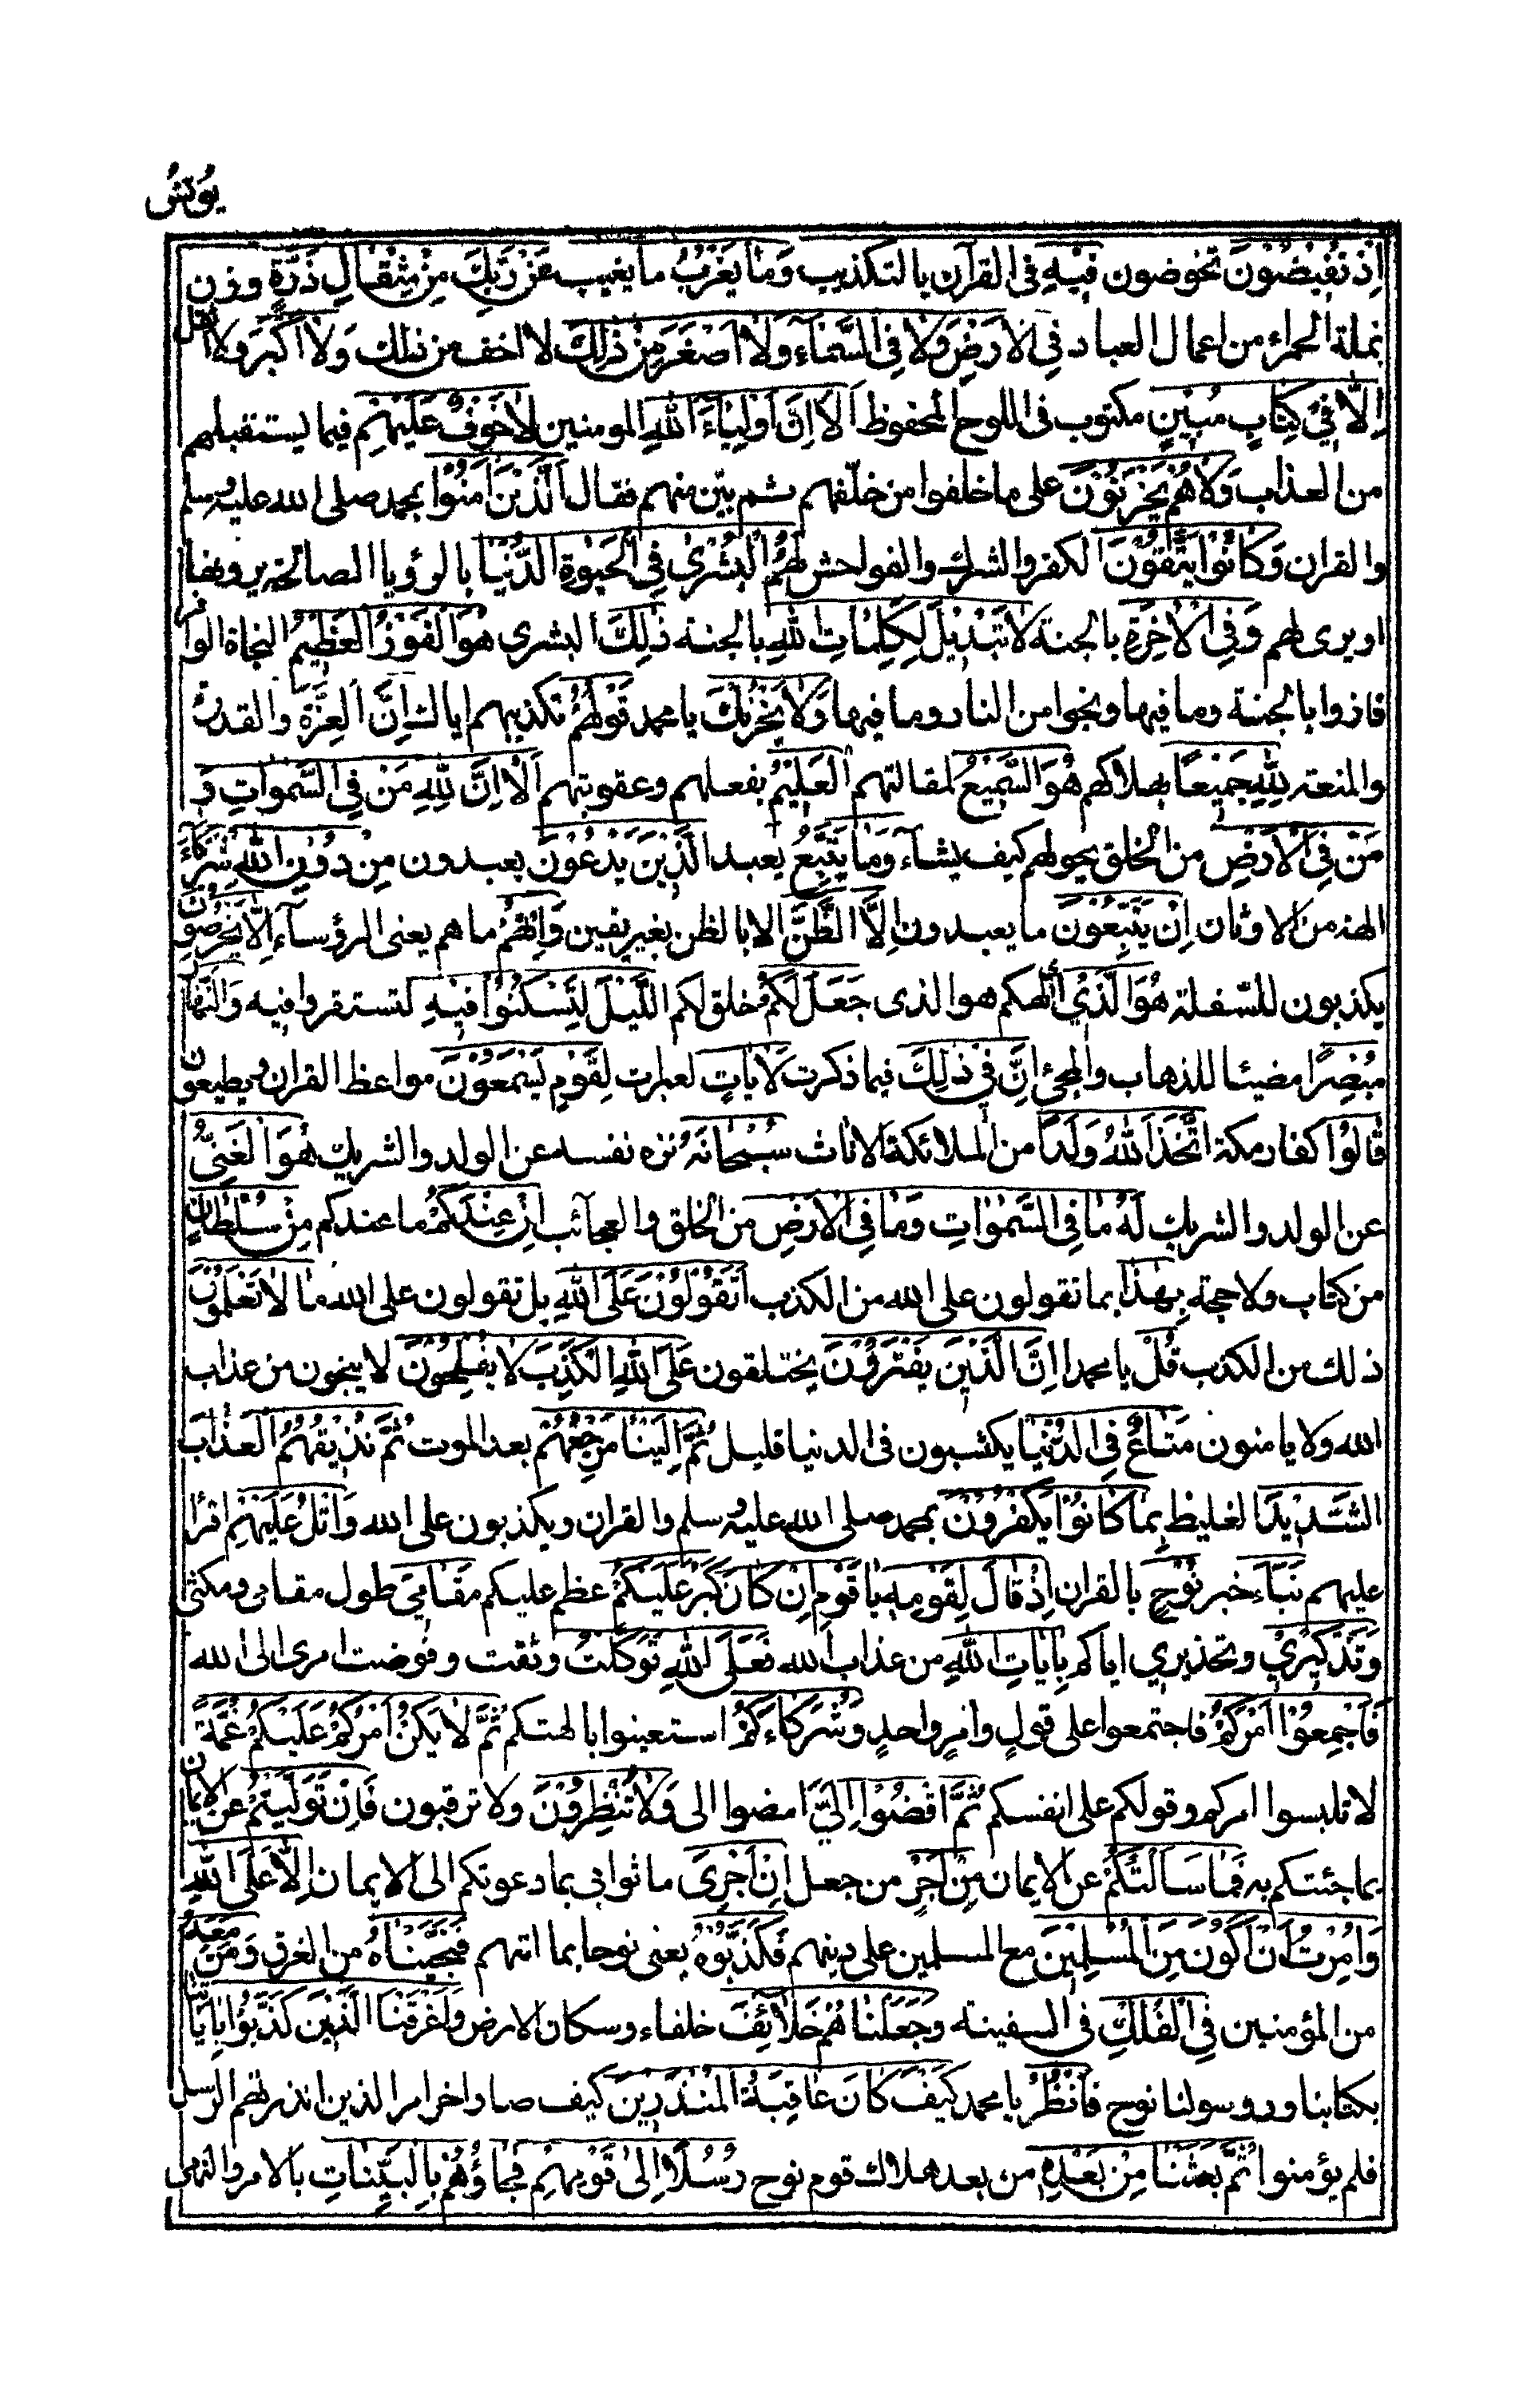 يُونسُ
اِذْ تُفِيْضُوْنَ تخوضون فِيْهِ فى القرآن بالتكذيب وَمَا يَعْزُبُ ما يغيب عَنْ رَبِّكَ مِنْ مِثْقَالِ ذَرَّةٍ وزن
نملة الحمراء من اعمال العباد فِي الْاَرْضِ وَلَا فِى السَّمَآءِ وَلَا اَصْغَرَ مِنْ ذٰلِكَ لا اخف من ذلك وَلَا اَكْبَرَ ولا اثقل
اِلَّا فِيْ كِتَابٍ مُبِيْنٍ مكتوب فى اللوح المحفوظ اَلَا اِنَّ اَوْلِيَاءَ اللّٰهِ المومنين لَا خَوْفٌ عَلَيْهِمْ فيما يستقبلهم
من العذاب وَلَا هُمْ يَحْزَنُوْنَ على ما خلفوا من خلفهم ثم بيّن منهم فقال اَلَّذِيْنَ اٰمَنُوْا بمحمد صلى الله عليه وسلم
والقران وَكَانُوْا يَتَّقُوْنَ الكفر والشرك والفواحش لَهُمُ الْبُشْرٰى فِي الْحَيٰوةِ الدُّنْيَا بالرؤيا الصالحة يرونها
او يرى لهم وَفِي الْاٰخِرَةِ بالجنة لَا تَبْدِيْلَ لِكَلِمَاتِ اللّٰهِ بالجنة ذٰلِكَ البشرى هُوَ الْفَوْزُ الْعَظِيْمُ النجاة الوافر
فازوا بالجنة وما فيها ونجوا من النار وما فيها وَلَا يَحْزُنْكَ يا محمد قَوْلُهُمْ تكذيبهم اياك اِنَّ الْعِزَّةَ والقدرة
والمنعة لِلّٰهِ جَمِيْعًا بهلاكهم هُوَ السَّمِيْعُ لمقالتهم الْعَلِيْمُ بفعلهم وعقوبتهم اَلَا اِنَّ لِلّٰهِ مَنْ فِي السَّمٰوَاتِ وَ
مَنْ فِي الْاَرْضِ من الخلق يحولهم كيف يشاء وَمَا يَتَّبِعُ يعبد الَّذِيْنَ يَدْعُوْنَ يعبدون مِنْ دُوْنِ اللّٰهِ شُرَكَآءَ
الهة من الاوثان اِنْ يَتَّبِعُوْنَ ما يعبدون اِلَّا الظَّنَّ الا بالظن بغير يقين وَاِنْ هُمْ ما هم يعنى الرؤساء اِلَّا يَخْرُصُوْنَ
يكذبون للسفلة هُوَ الَّذِيْ الهكم هو الذى جَعَلَ لَكُمُ خلق لكم اللَّيْلَ لِتَسْكُنُوْا فِيْهِ لتستقروا فيه وَالنَّهَارَ
مُبْصِرًا مضيئا للذهاب والمجئ اِنَّ فِي ذٰلِكَ فيما ذكرت لَاٰيَاتٍ لعبرات لِقَوْمٍ يَسْمَعُوْنَ مواعظ القران ويطيعون
قَالُوْا كفار مكة اتَّخَذَ اللّٰهُ وَلَدًا من الملائكة الاناث سُبْحَانَهُ نزه نفسه عن الولد والشريك هُوَ الْغَنِيُّ
عن الولد والشريك لَهُ مَا فِي السَّمٰوَاتِ وَمَا فِي الْاَرْضِ من الخلق والعجائب اِنْ عِنْدَكُمْ ما عندكم مِنْ سُلْطَانٍ
من كتاب ولا حجة بِهٰذَا بما تقولون على الله من الكذب اَتَقُوْلُوْنَ عَلَى اللّٰهِ بل تقولون على الله مَا لَا تَعْلَمُوْنَ
ذلك من الكذب قُلْ يا محمد اِنَّ الَّذِيْنَ يَفْتَرُوْنَ يختلقون عَلَى اللّٰهِ الْكَذِبَ لَا يُفْلِحُوْنَ لا ينجون من عذاب
الله ولا يامنون مَتَاعٌ فِي الدُّنْيَا يكتسبون فى الدنيا قليل ثُمَّ اِلَيْنَا مَرْجِعُهُمْ بعد الموت ثُمَّ نُذِيْقُهُمُ الْعَذَابَ
الشَّدِيْدَ الغليظ بِمَا كَانُوْا يَكْفُرُوْنَ بمحمد صلى الله عليه وسلم والقران ويكذبون على الله وَاتْلُ عَلَيْهِمْ اقرأ
عليهم نَبَاَ خبر نُوْحٍ بالقران اِذْ قَالَ لِقَوْمِهِ يَا قَوْمِ اِنْ كَانَ كَبُرَ عَلَيْكُمْ عظم عليكم مَقَامِيْ طول مقامى ومكثى
وَتَذْكِيْرِيْ وتحذيري اياكم بِاٰيَاتِ اللّٰهِ من عذاب الله فَعَلَى اللّٰهِ تَوَكَّلْتُ وثقت وفوضت امرى الى الله
فَاَجْمِعُوْا اَمْرَكُمْ فاجتمعوا على قولٍ وامرٍ واحدٍ وَشُرَكَاءَكُمْ استعينوا بالهتكم ثُمَّ لَا يَكُنْ اَمْرُكُمْ عَلَيْكُمْ غُمَّةً
لا تلبسوا امركم وقولكم على انفسكم ثُمَّ اقْضُوْا اِلَيَّ امضوا الى وَلَا تُنْظِرُوْنَ ولا ترقبون فَاِنْ تَوَلَّيْتُمْ عن الايمان
بما جئتكم به فَمَا سَاَلْتُكُمْ عن الايمان مِنْ اَجْرٍ من جعل اِنْ اَجْرِيَ ما ثوابى بما دعوتكم الى الايمان اِلَّا عَلَى اللّٰهِ
وَاُمِرْتُ اَنْ اَكُوْنَ مِنَ الْمُسْلِمِيْنَ مع المسلمين على دينهم فَكَذَّبُوْهُ يعنى نوحا بما اتهم فَنَجَّيْنَاهُ من الغرق وَمَنْ مَعَهُ
من المؤمنين فِي الْفُلْكِ فى السفينة وَجَعَلْنَاهُمْ خَلَائِفَ خلفاء وسكان الارض وَاَغْرَقْنَا الَّذِيْنَ كَذَّبُوْا بِاٰيَاتِنَا
بكتابنا ورسولنا نوح فَانْظُرْ يا محمد كَيْفَ كَانَ عَاقِبَةُ الْمُنْذَرِيْنَ كيف صار اخر امر الذين انذرتهم الرسل
فلم يؤمنوا ثُمَّ بَعَثْنَا مِنْ بَعْدِهِ من بعد هلاك قوم نوح رُسُلًا اِلٰى قَوْمِهِمْ فَجَاؤُهُمْ بِالْبَيِّنَاتِ بالامر والنهى